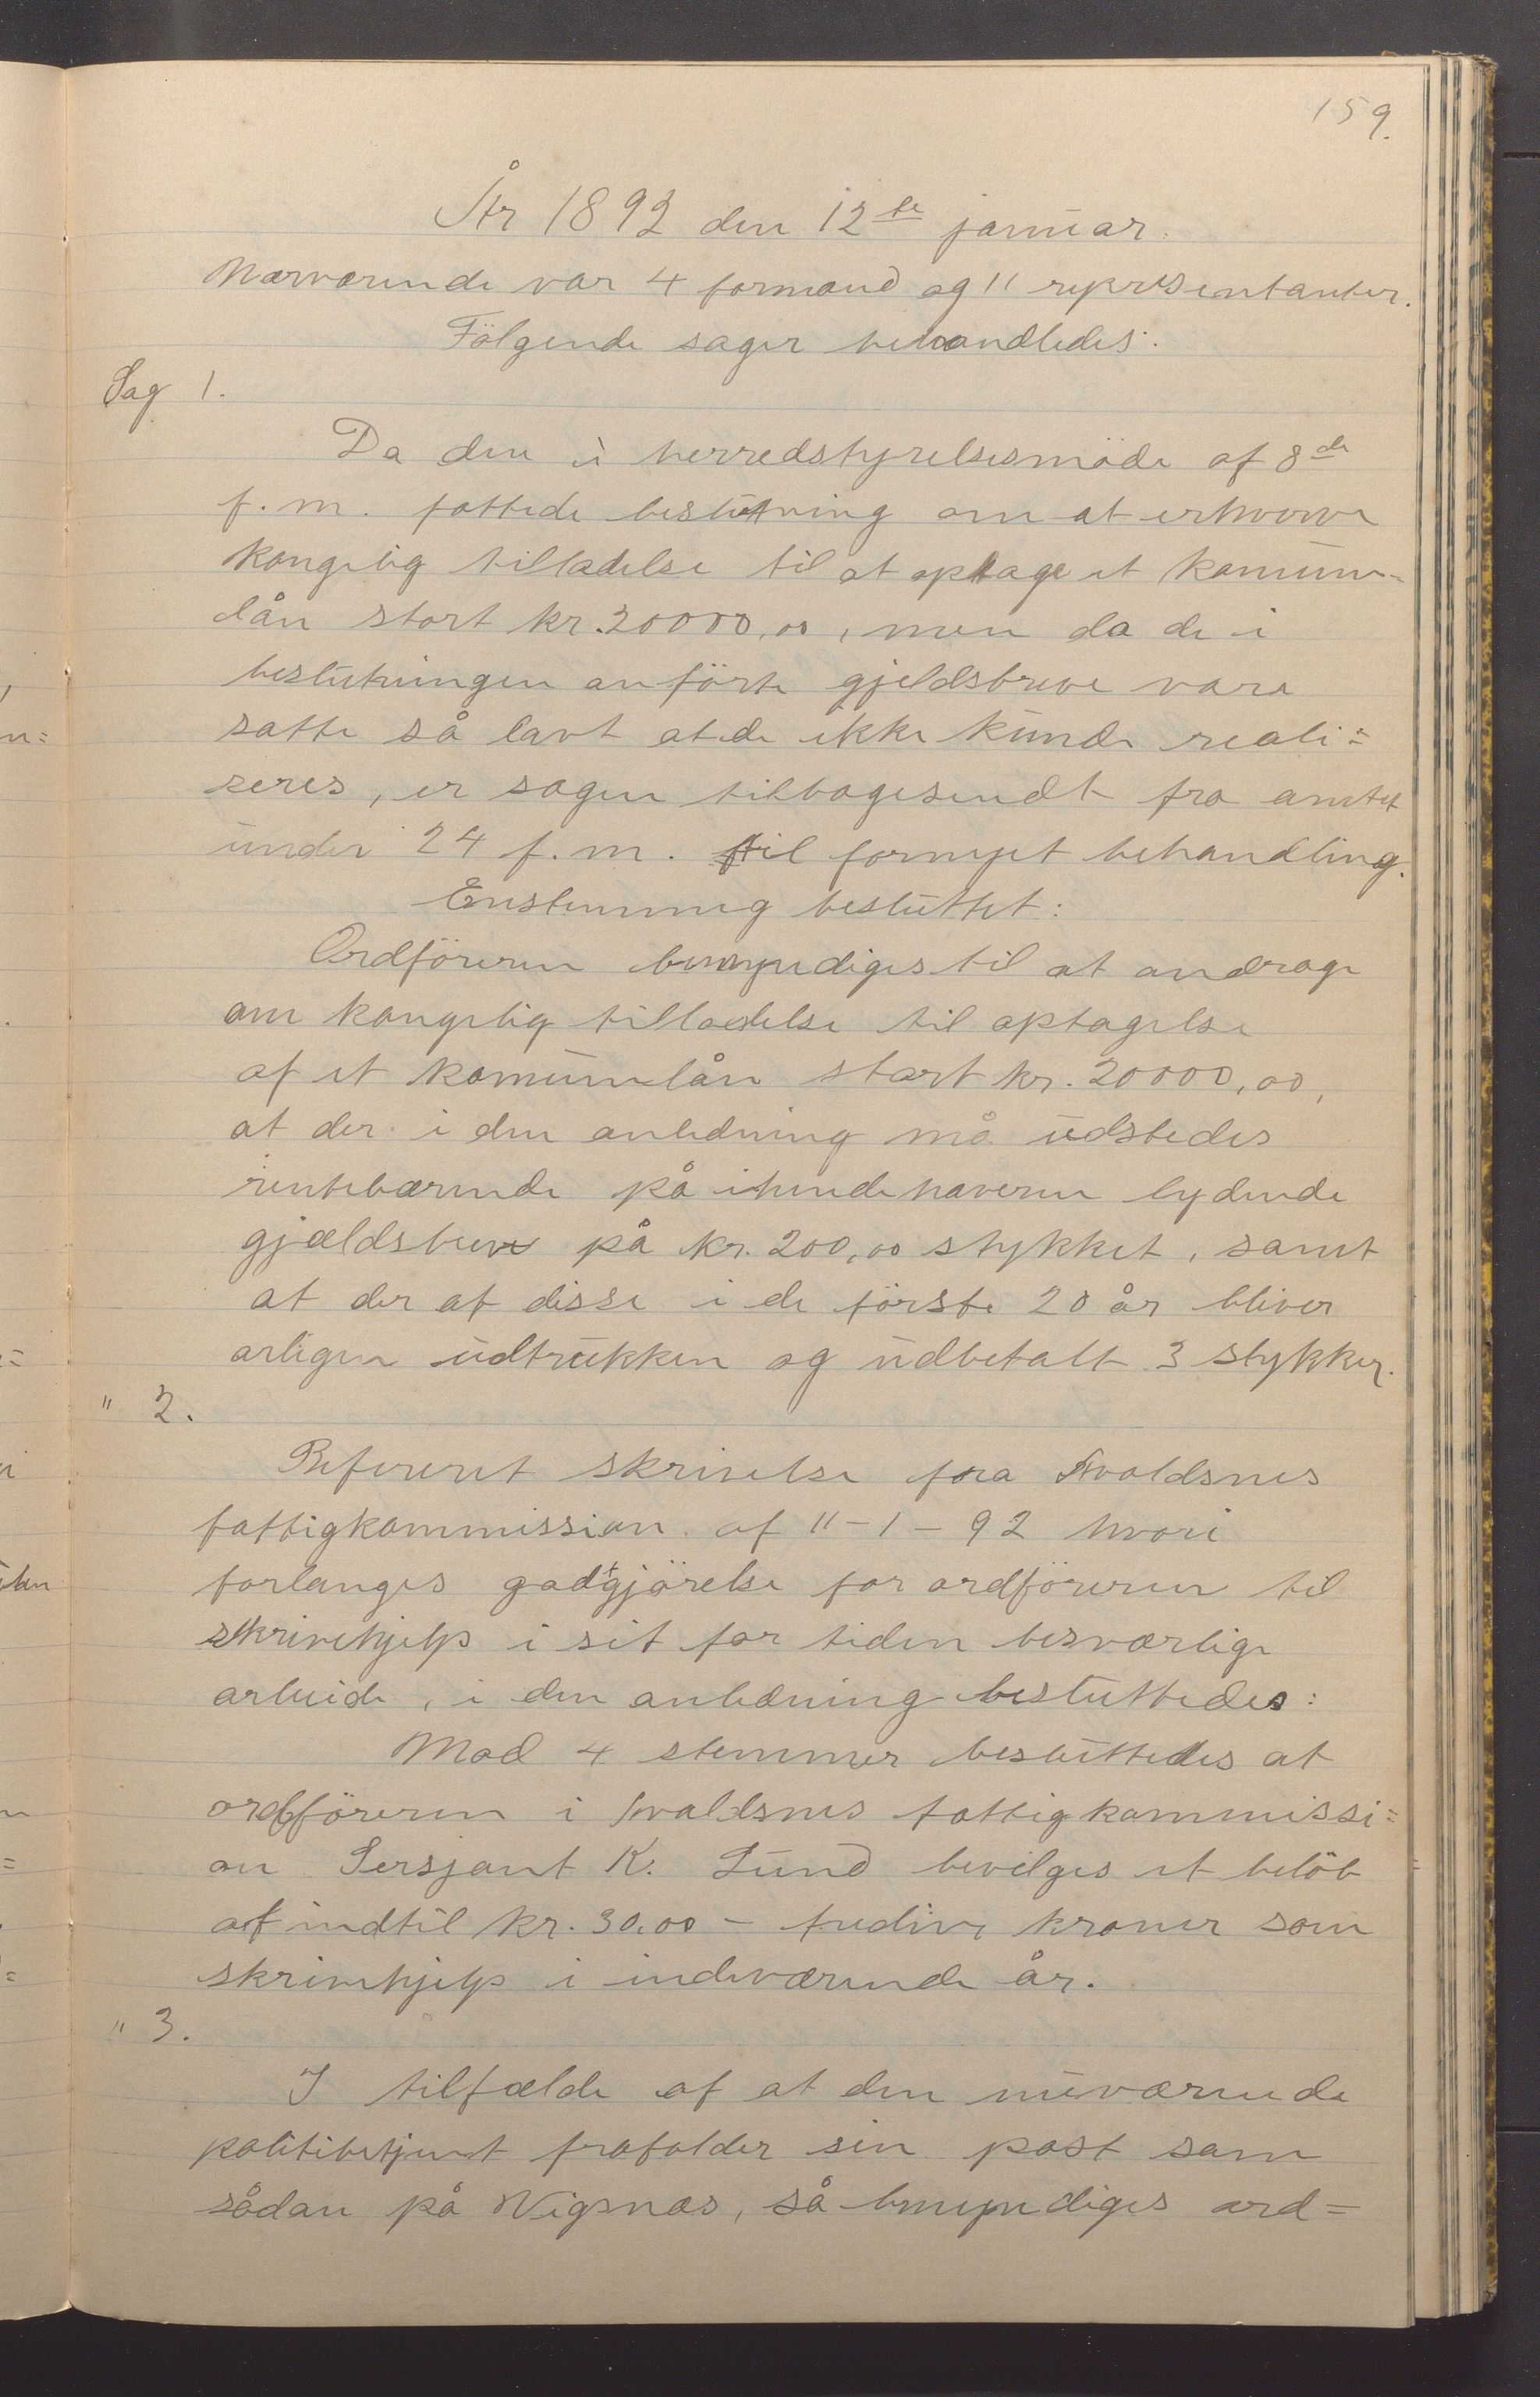 159.
År 1892 den 12te januar.
Nærværende var 4 formænd og 11 repræsentanter.
Følgende sager behandledes:
Sag 1.
Da den i herredstyrelsesmøde af 8de
f. m. fattede beslutning om at erhverve
kongelig tilladelse til at optage et komune-
lån stort kr. 20000,00, men da de i
beslutningen anførte gjeldsbreve vare
satte så lavt at de ikke kunde reali=
seres, er sagen tilbagesendt fra amtet
under 24 f. m. til fornyet behandling.
Enstemmig besluttet:
Ordføreren bemyndiges til at andrage
om kongelig tilladelse til optagelse
af et komunelån stort kr. 20000,00,
at der i den anledning må udstedes
rentebærende på ihendehaveren lydende
gjældsbreve på kr. 200,00 stykket, samt
at der af disse i de første 20 år bliver
årligen udtrukken og udbetalt 3 stykker.
" 2.
Refereret skrivelse fra Avaldsnes
fattigkommission af 11-1-92 hvori
forlanges godtgjørelse for ordføreren til
skrivehjelp i sit for tiden besværlige
arbeide, i den anledning besluttedes:
Mod 4 stemmer besluttedes at
ordføreren i Avaldsnes fattigkommissi=
on Sersjant K. Lund bevilges et beløb
af indtil kr. 30.00 - tredive kroner som
skrivehjelp i indeværende år.
" 3.
I tilfælde af at den nuværende
politibetjent frafalder sin post som
sådan på Vigsnæs, så bemyndiges ord=